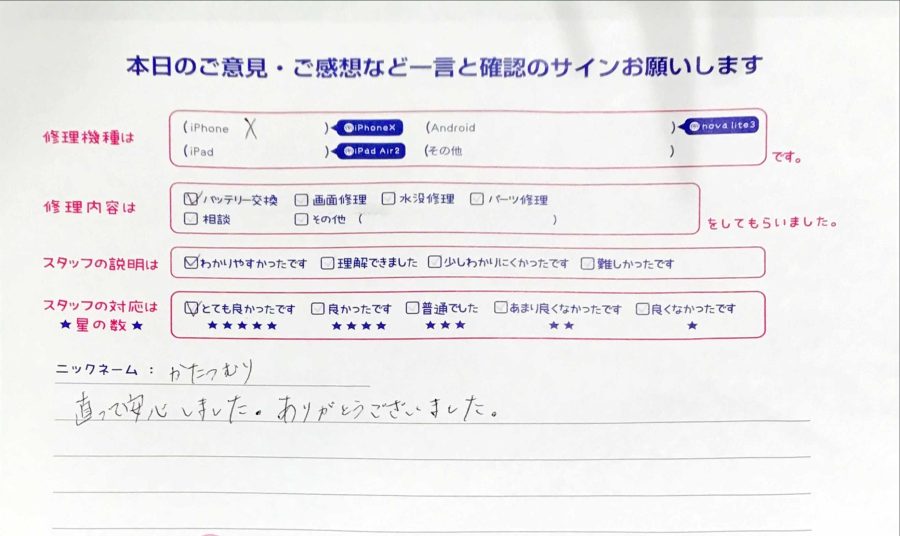 本日のご意見・ご感想など一言と確認のサインお願いします
修理機種は
(iPhone X ) 例iPhoneX (Android ) 例nova lite3
(iPad ) 例iPad Air2 (その他 )
です。
修理内容は
バッテリー交換 画面修理 水没修理 パーツ修理
相談 その他 ( )
をしてもらいました。
スタッフの説明は
わかりやすかったです 理解できました 少しわかりにくかったです 難しかったです
スタッフの対応は
★星の数★
とても良かったです 良かったです 普通でした あまり良くなかったです 良くなかったです
★★★★★ ★★★★ ★★★ ★★ ★
ニックネーム : かたつむり
直って安心しました。ありがとうございました。